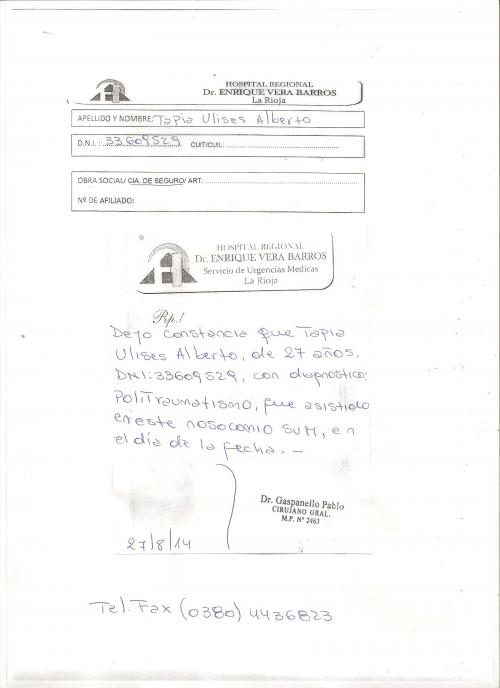 HOSPITAL REGIONAL
Dr. ENRIQUE VERA BARROS
La Rioja
APELLIDO Y NOMBRE: Tapia Ulises Alberto
D.N.I. : 33609529 CUIT/CUIL:
OBRA SOCIAL/ CIA. DE SEGURO/ ART:
Nº DE AFILIADO:
HOSPITAL REGIONAL
Dr. ENRIQUE VERA BARROS
Servicio de Urgencias Medicas
La Rioja
Rp./
Dejo constancia que Tapia
Ulises Alberto, de 27 años.
DNI:33609529, con diagnostico:
PoliTraumatismo, fue asistido
en este nosocomio SUM, en
el día de la fecha. -
Dr. Gaspanello Pablo
CIRUJANO GRAL.
M.P. Nº 2463
27/8/14
Tel. Fax (0380) 4436823